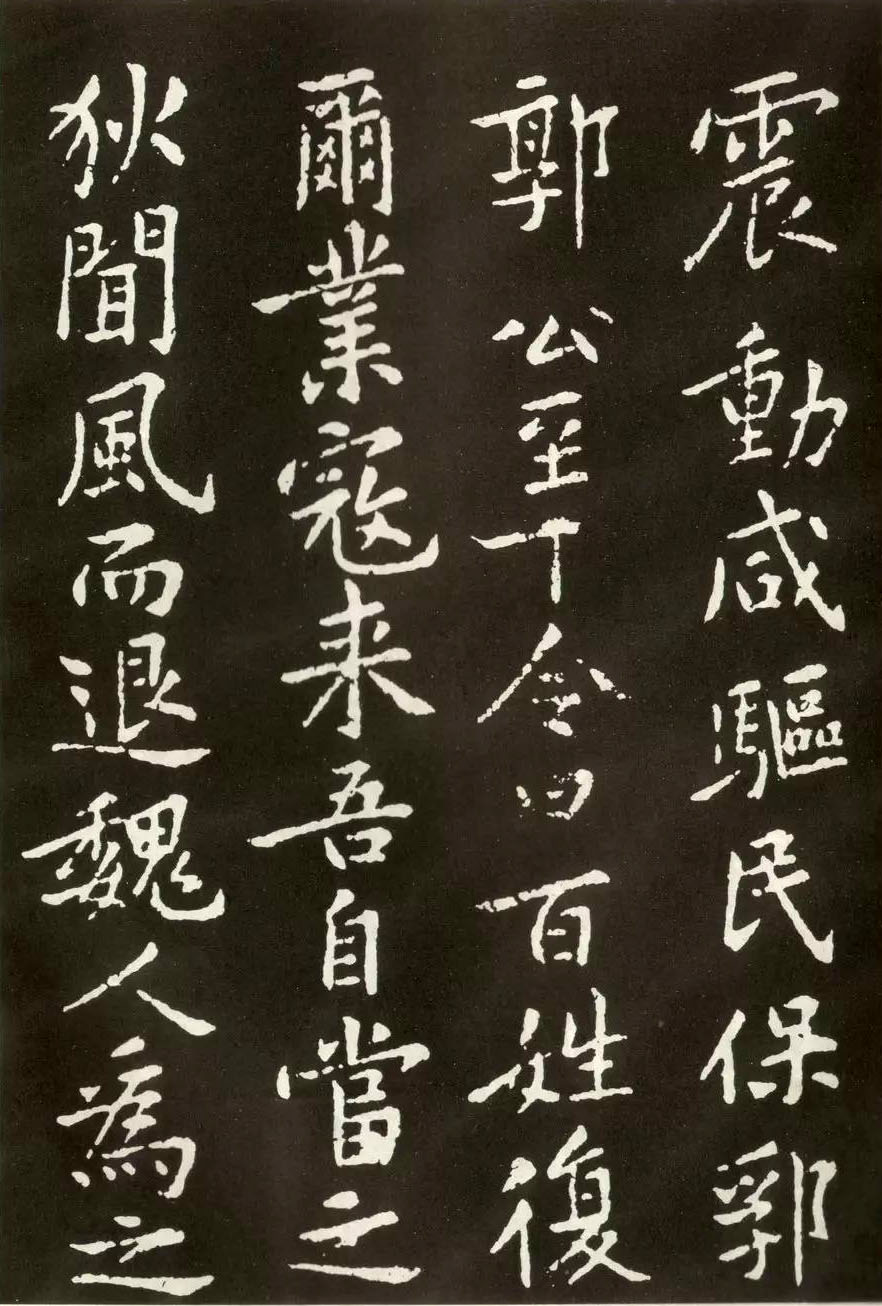 震動咸驅民保郛
郭公至下令曰百姓復
爾業寇来吾自當之
狄聞風而退魏人爲之